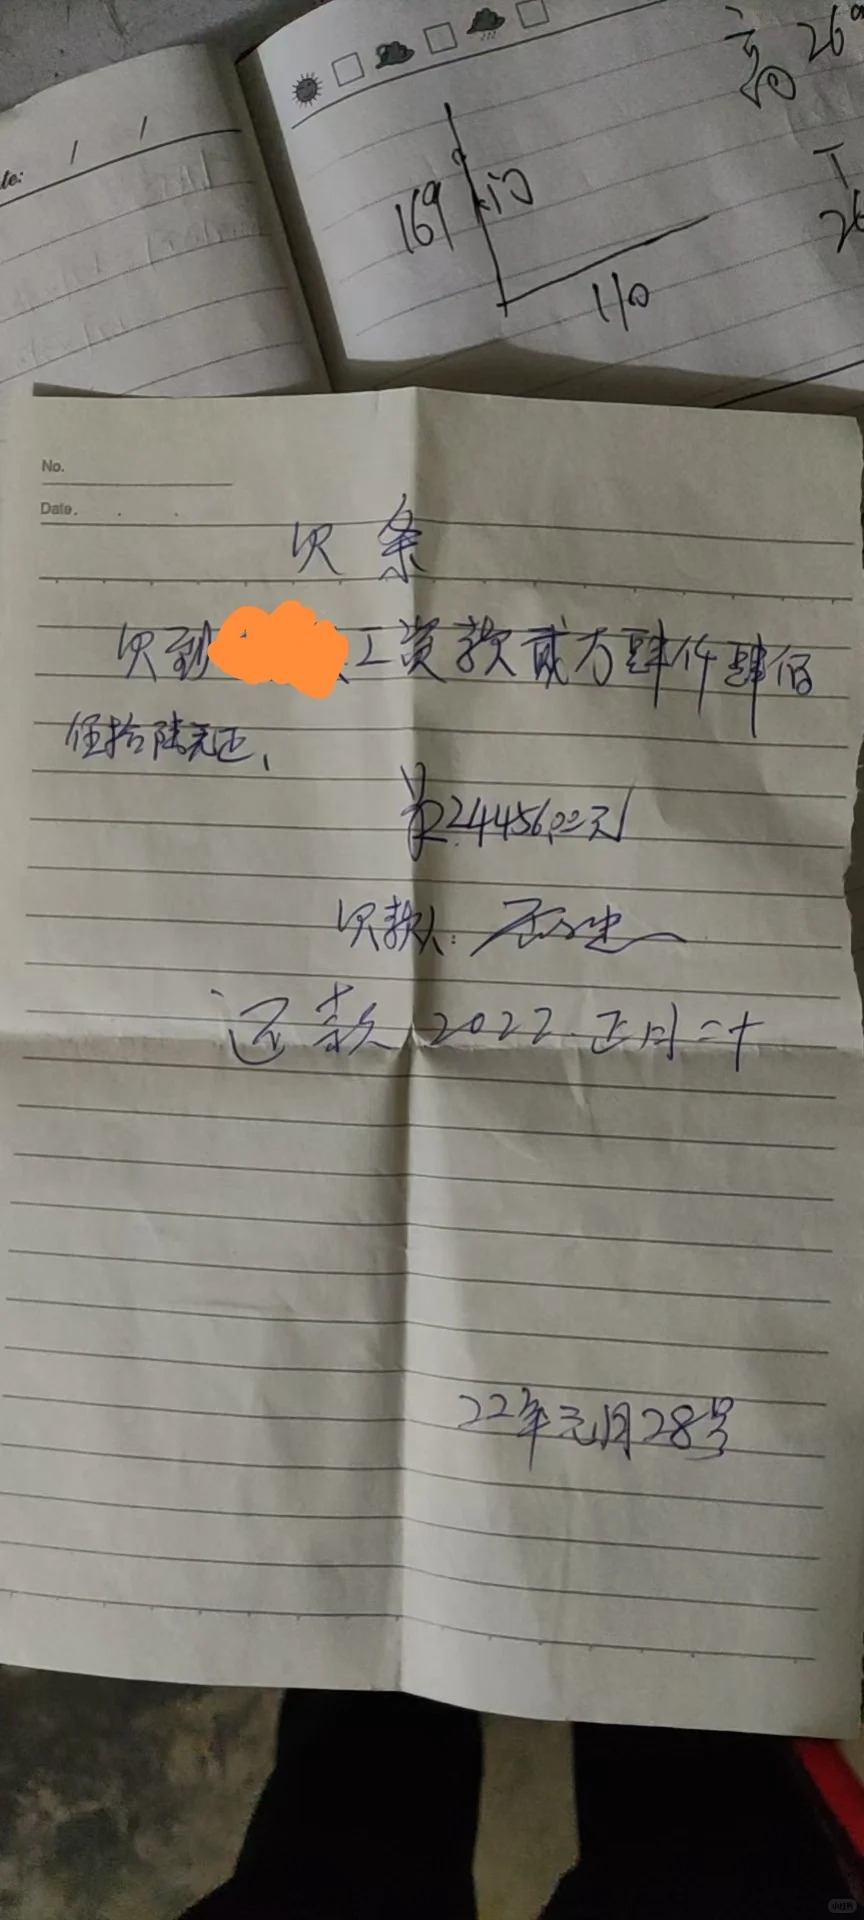 te: / /
高 269
169
110
No.
Date. . .
欠条
欠到 工资款贰万肆仟肆佰
伍拾陆元正、
24456.00元
欠款人:
还款 2022.正月二十
22年元月28号
小红书